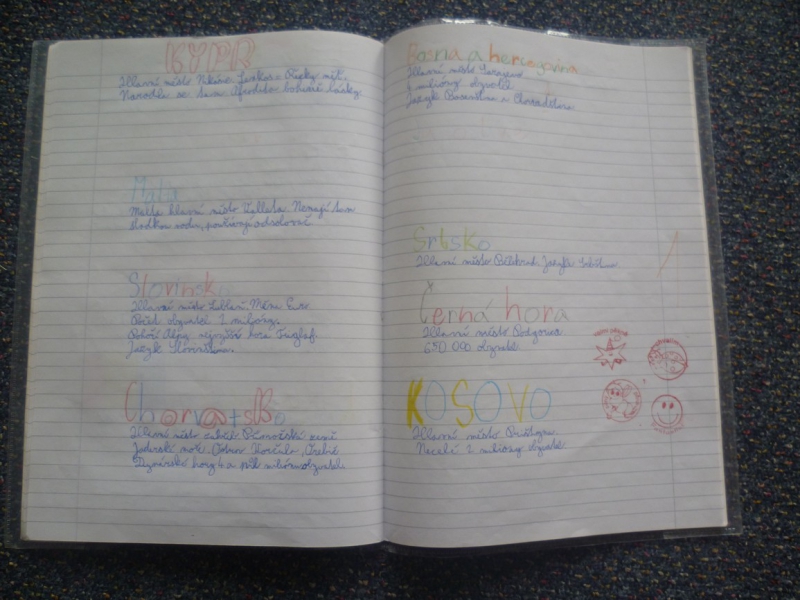 KYPR
Hlavní město Nikósie. Jazyk - Řecky mít.
Narodila se tam Afrodita bohyně lásky.
Malta
Malta hlavní město Valleta. Nemají tam
sladkou vodu, používají odsolovač
Slovinsko
Hlavní město Lublaň. Měna Euro.
Počet obyvatel 2 milióny.
Pohoří Alpy, nejvyšší hora Triglaf.
Jazyk Slovinština.
Chorvatsko
Hlavní město Záhřeb
Jaderské moře. Ostrov Korčula,
Dynárské hory 4 a půl miliónu obyvatel.
Bosna a hercegovina
Hlavní město Sarajevo
4 milióny obyvatel
Jazyk Bosenština a Chorvatština
Srbsko
Hlavní město Bělehrad. Jazyk Srbština
Černá hora
Hlavní město Podgorica
650 000 obyvatel
1
KOSOVO
Hlavní město Priština
Necelé 2 milióny obyvatel